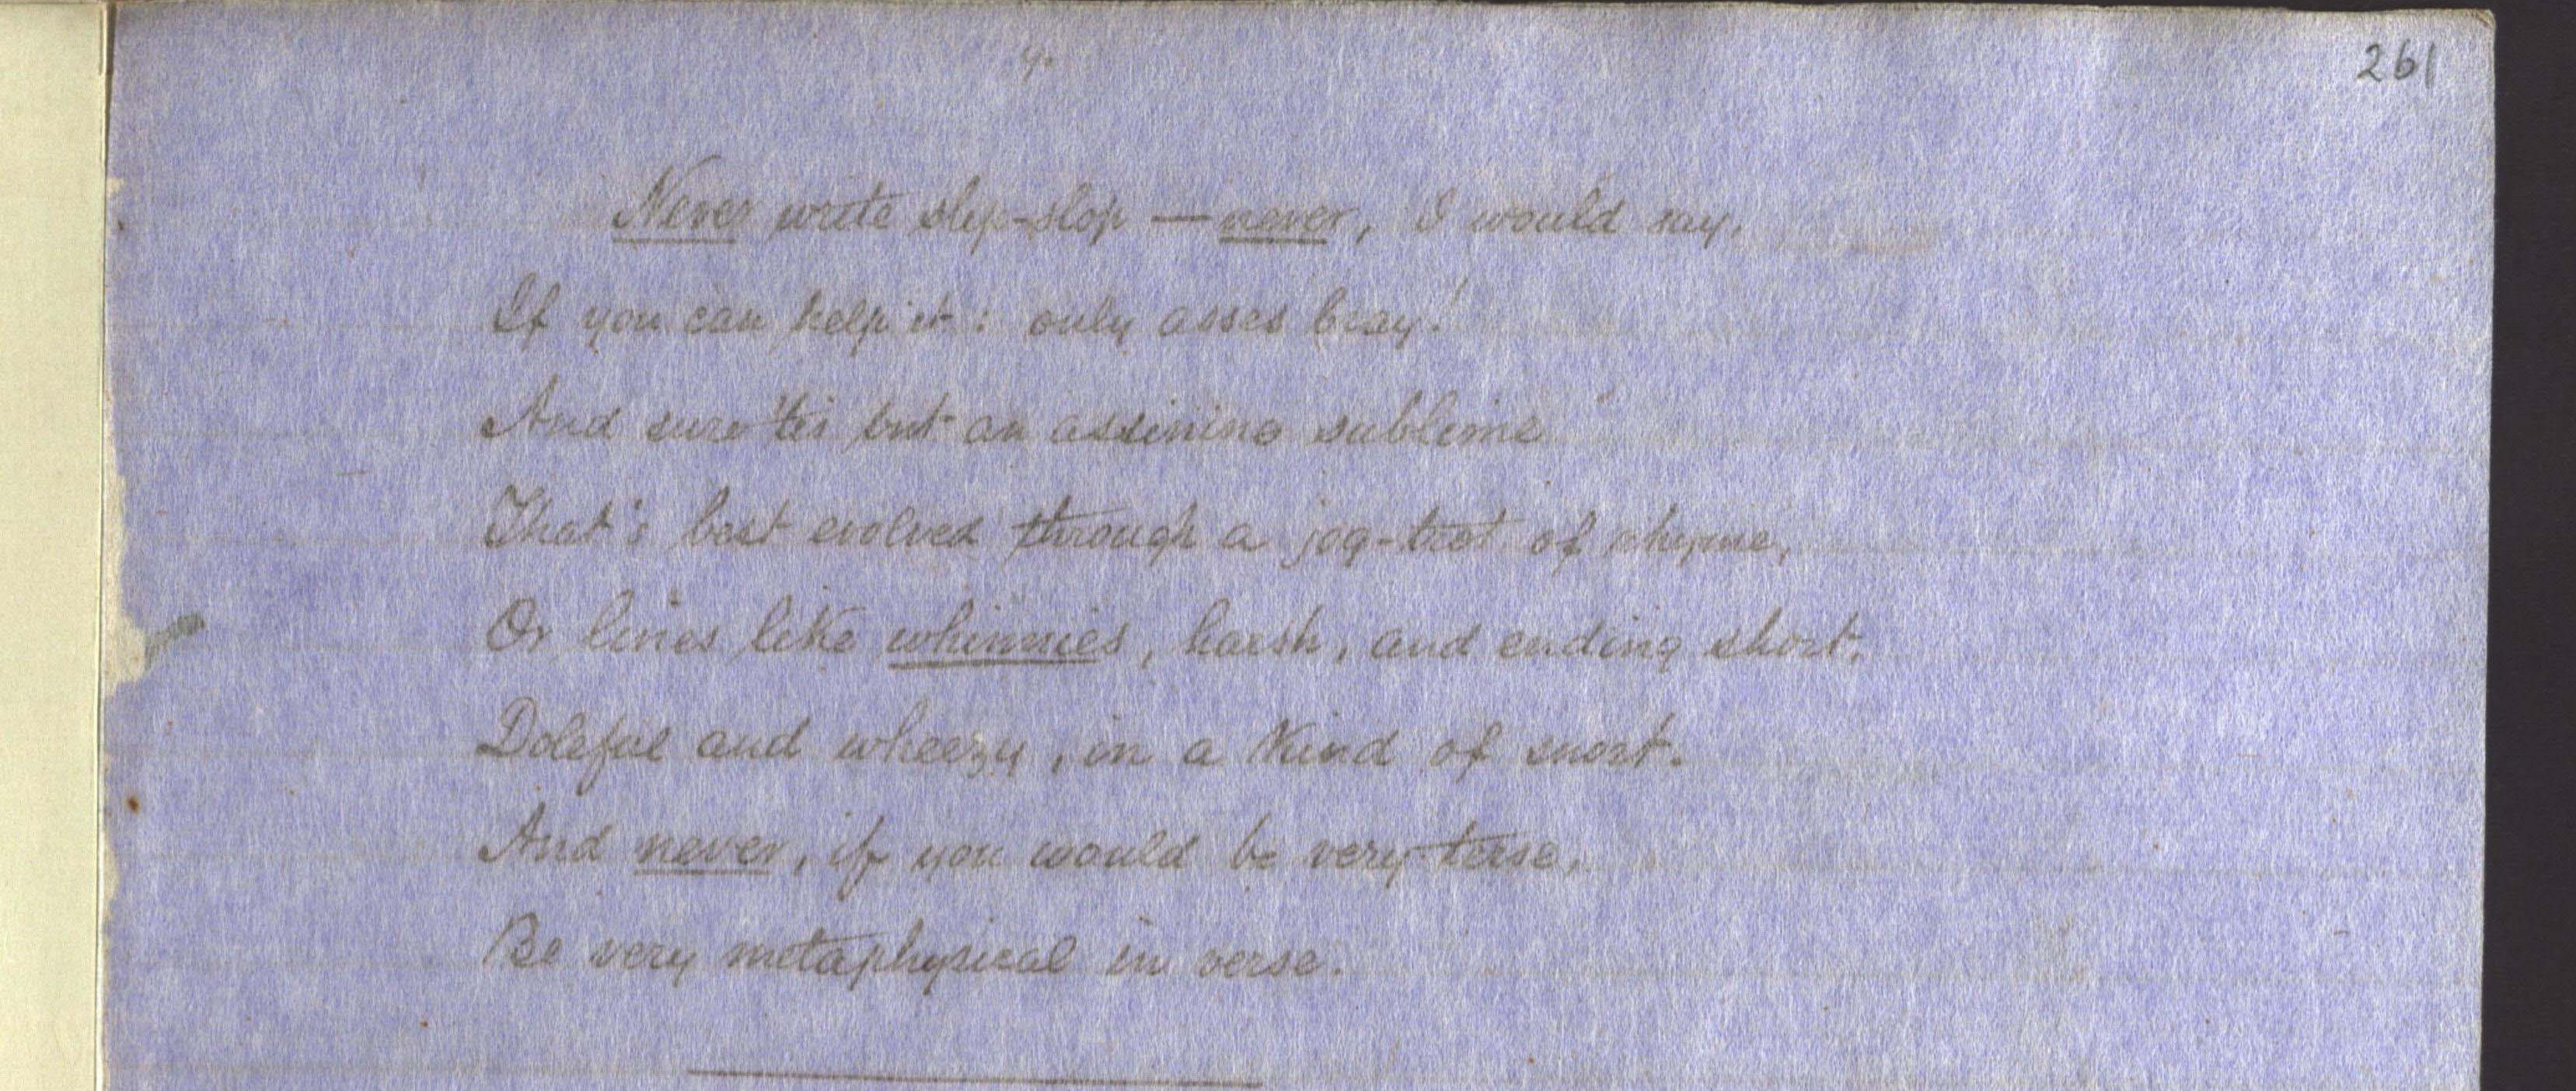 4.
261
Never write slip-slop — never, I would say,
If you can help it: only asses bray!
And sure 'tis but an assinine sublime
That's best evolved through a jog-trot of rhyme,
Or lines like whinnies, harsh, and ending short,
Doleful and wheezy, in a kind of snort.
And never, if you would be very terse,
Be very metaphysical in verse.